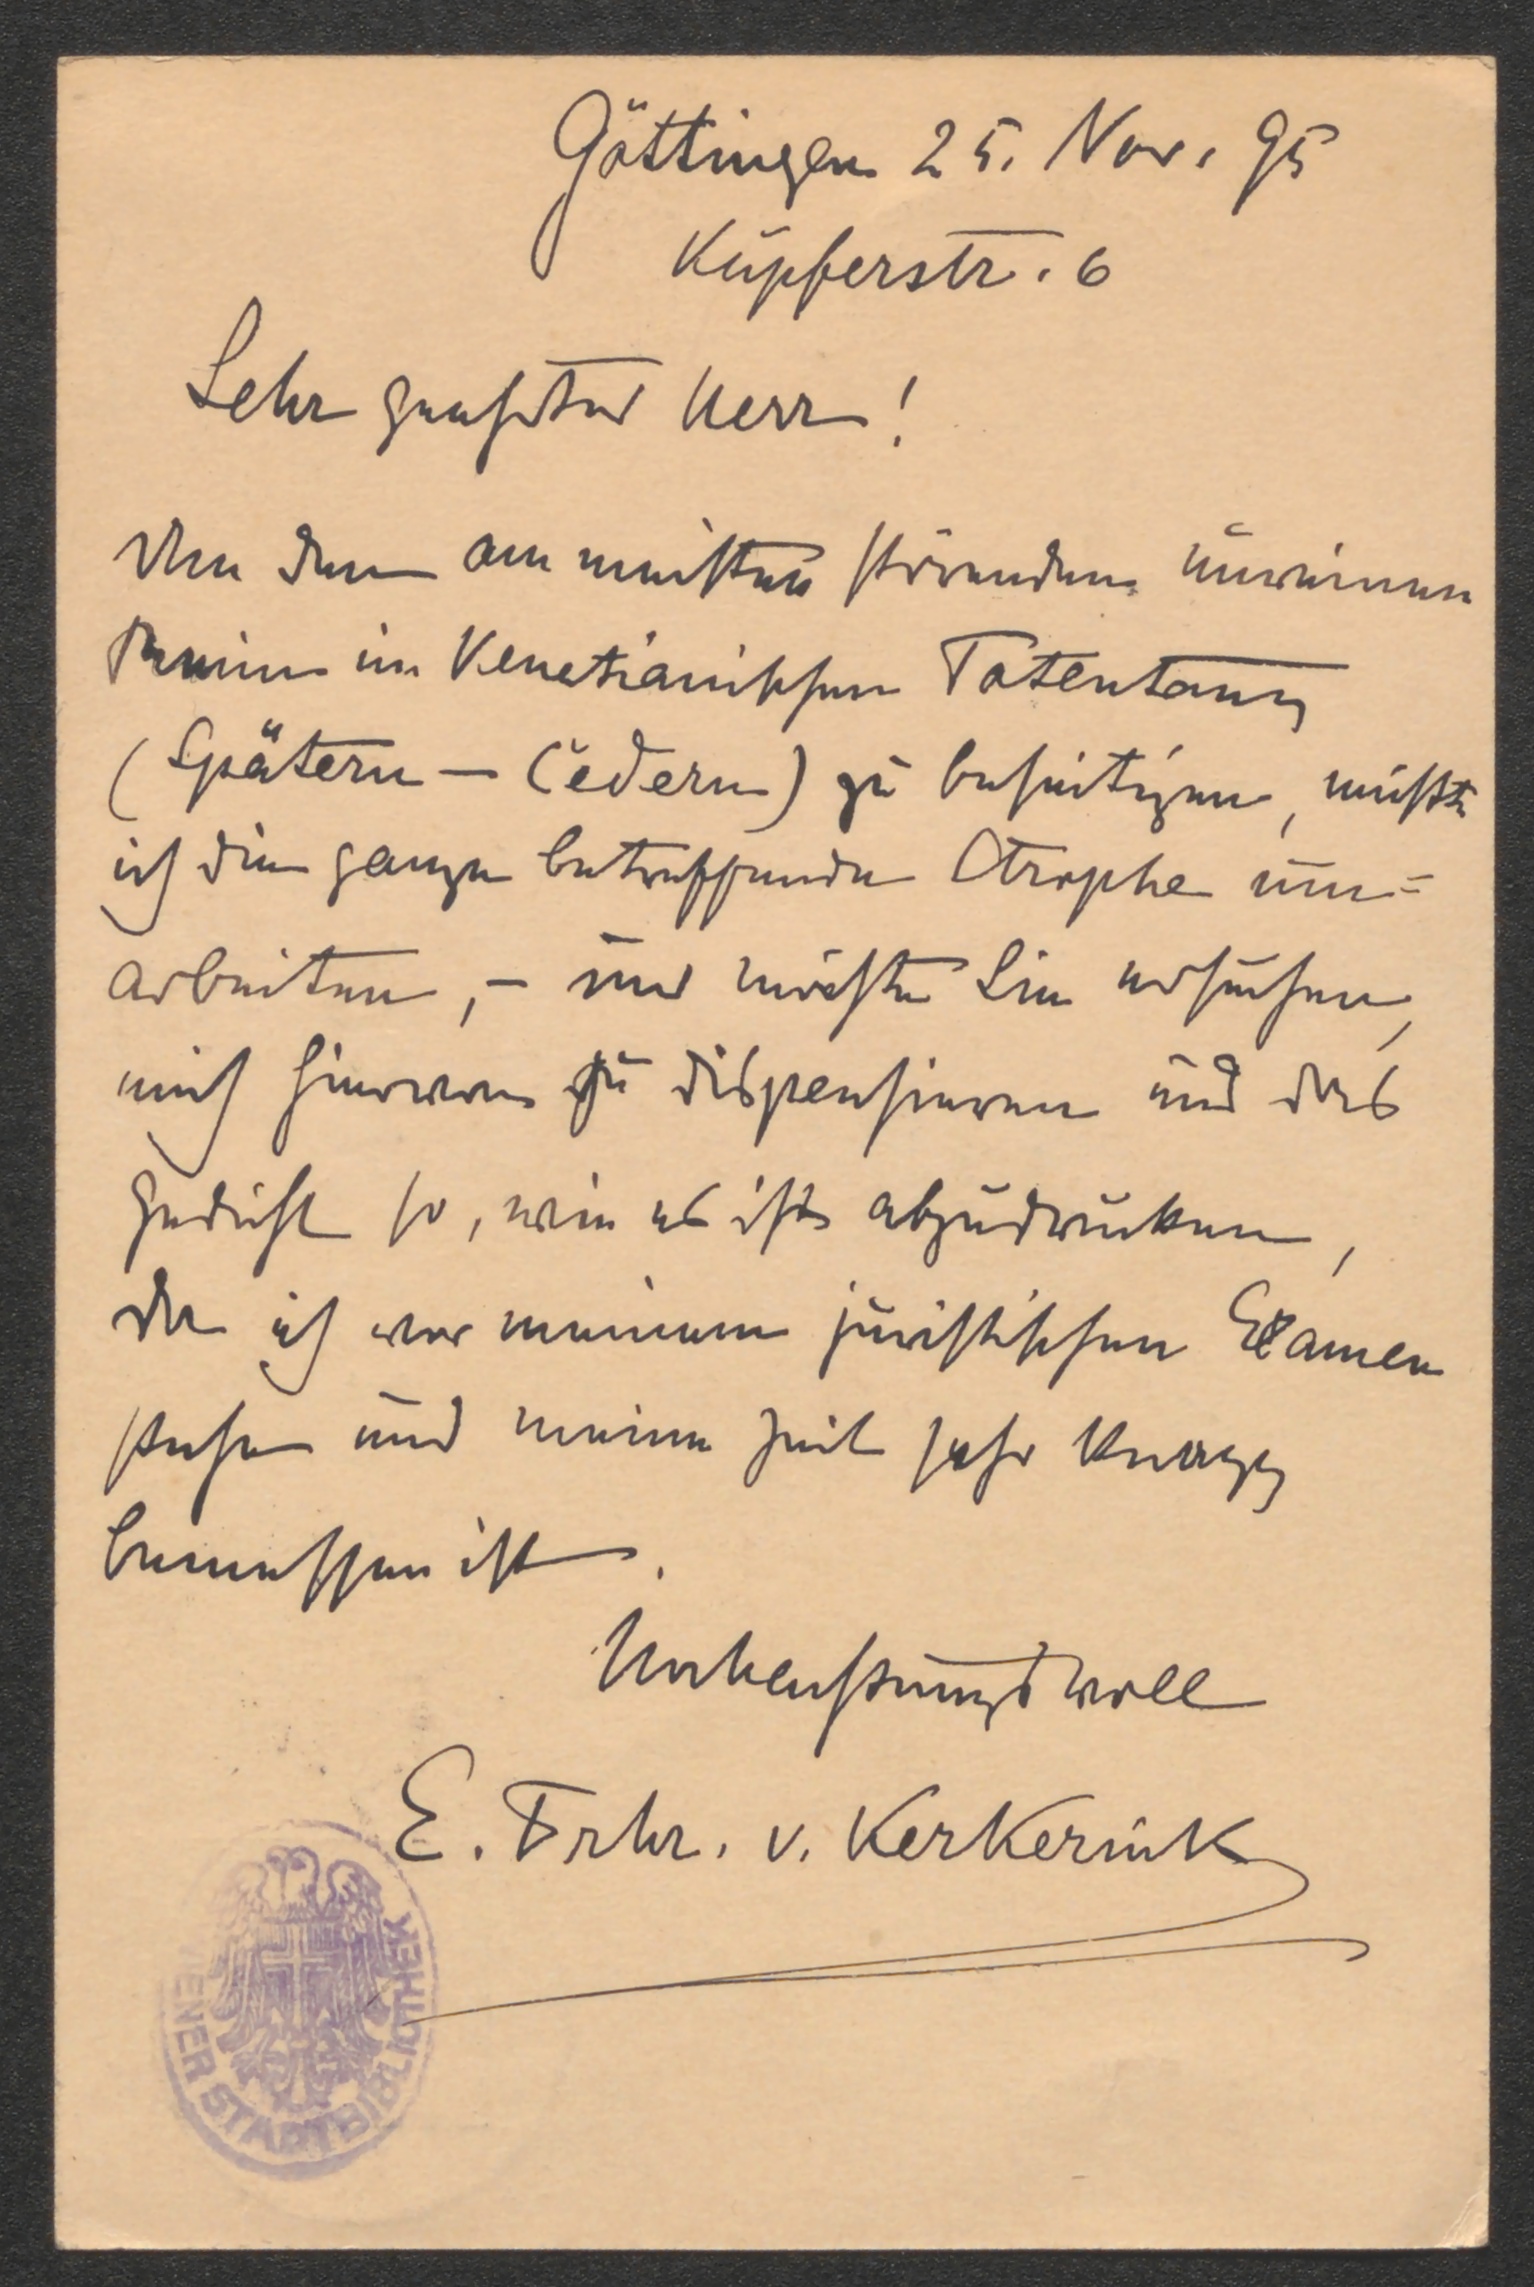 Göttingen 25. Nov. 95
Kupferstr. 6
Sehr geehrter Herr!
Um den am meisten störenden unreinen
Reim im Venetianischen Totentanz
(Spätern – Cedern) zu beseitigen, müßte
ich die ganze betreffende Strophe um=
arbeiten, – und möchte Sie ersuchen,
mich hiervon zu dispensieren und das
Gedicht so, wie es ist, abzudrucken,
da ich vor meinem juristischen Examen
stehe und meine Zeit sehr knapp
bemessen ist.
Hochachtungsvoll
E. Frhr. v. Kerkerink
WIENER STADTBIBLIOTHEK